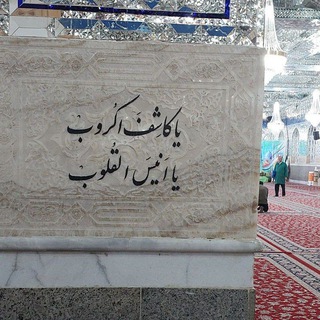 یا کاشِفَ الکُروب
یا اَنیسَ القُلوب